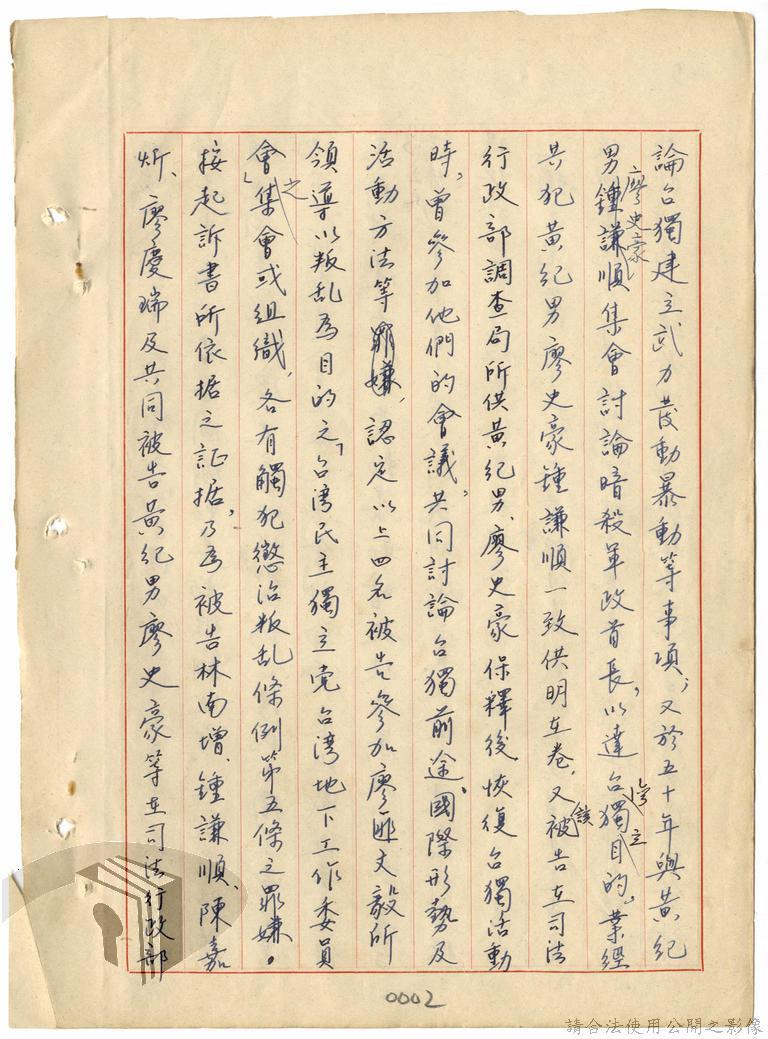 論台獨建立武力發動暴動等事項，又於五十年與黃紀
男廖史豪鍾謙順集會討論暗殺軍政首長，以達台獨目的，業經
共犯黃紀男廖史豪鍾謙順一致供明在卷，又該被告在司法
行政部調查局所供黃紀男、廖史豪保釋後恢復台獨活動
時，曾參加他們的會議，共同討論台獨前途、國際形勢及
活動方法等罪嫌，認定以上四名被告參加廖匪文毅所
領導以叛乱為目的之「台湾民主獨立党台湾地下工作委員
會」之集會或組織，各有觸犯懲治叛乱條例第五條之罪嫌。
按起訴書所依据之証据，乃為被告林南增、鍾謙順、陳嘉
炘、廖慶瑞及共同被告黃紀男廖史豪等在司法行政部
0002
請合法使用公開之影像